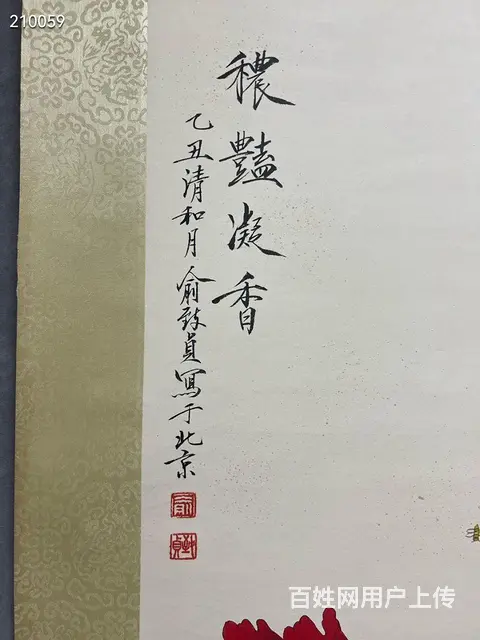 210059
穠豔凝香
乙丑清和月俞致貞寫于北京
致貞
百姓网用户上传